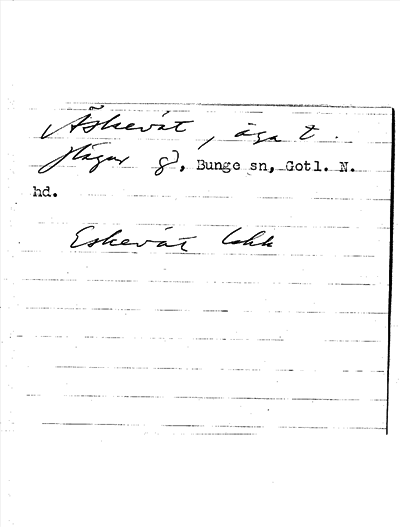 Äskevät, äga t.
Hägur g, Bunge sn, Gotl. N.
hd.
Eskevät